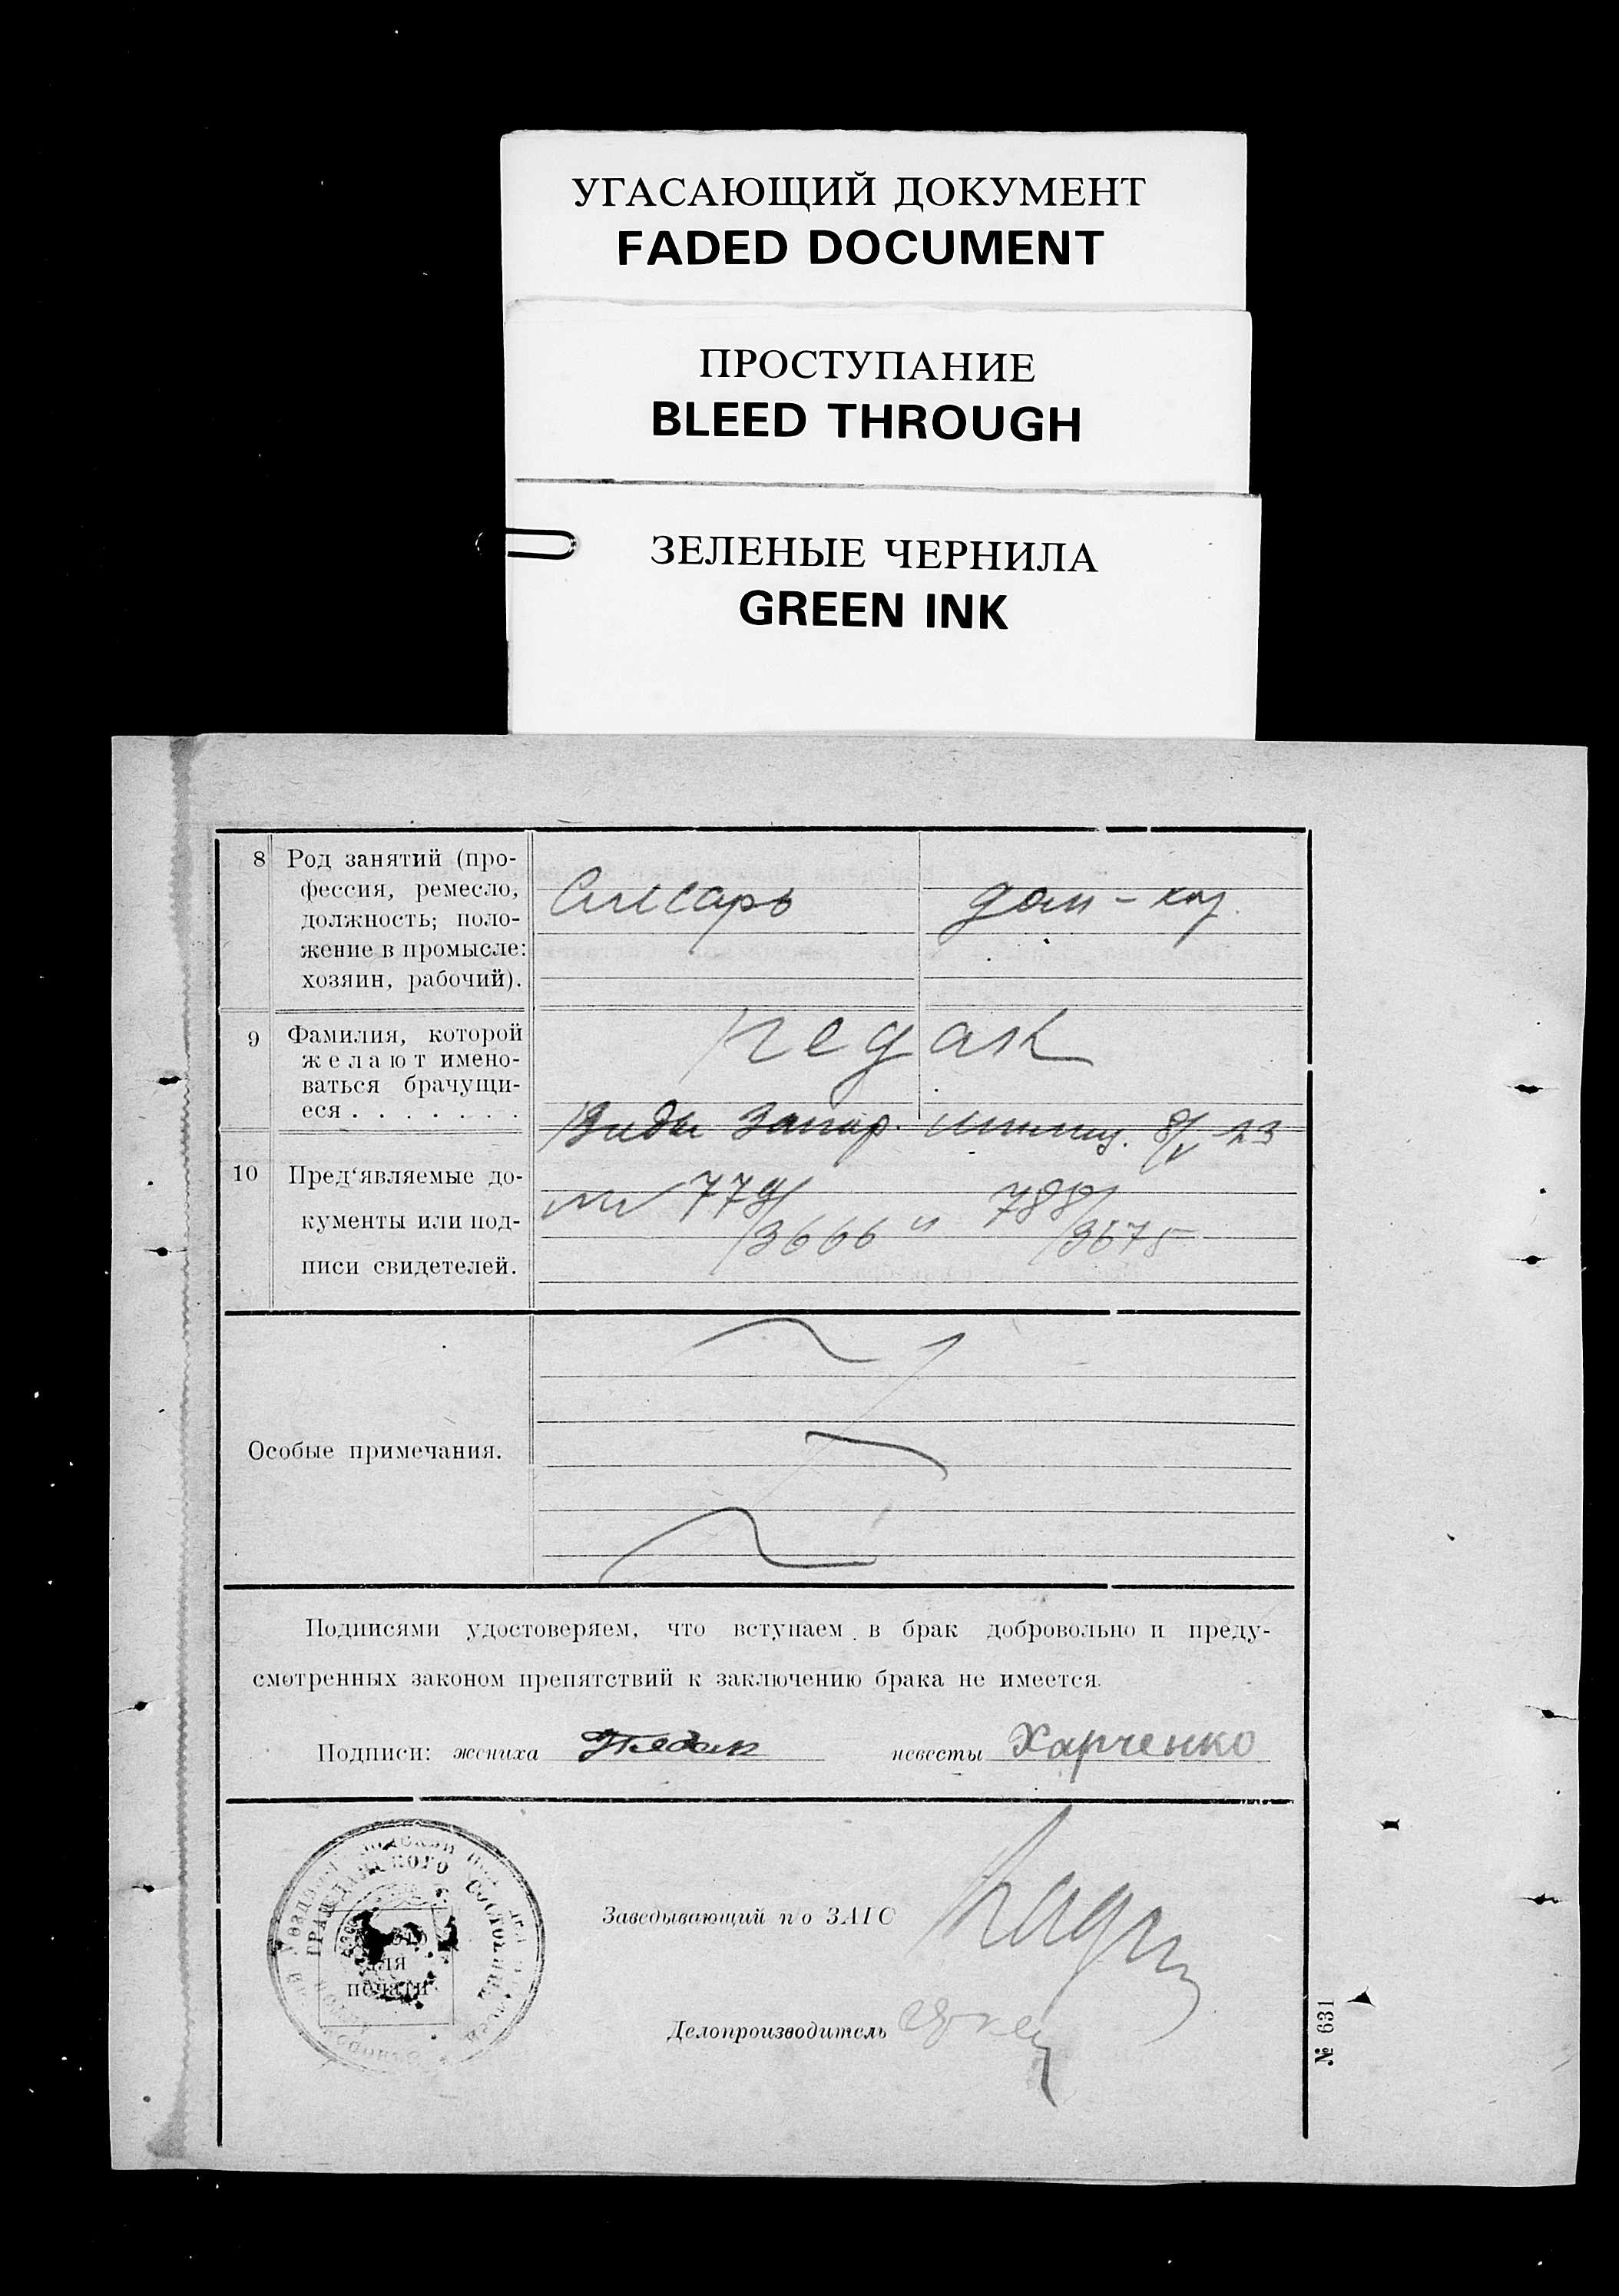 УГАСАЮЩИЙ ДОКУМЕНТ
FADED DOCUMENT
ПРОСТУПАНИЕ
BLEED THROUGH
ЗЕЛЕНЫЕ ЧЕРНИЛА
GREEN INK
8 Род занятий (про-
фессия, ремесло,
должность; поло-
жение в промысле:
хозяин, рабочий).
Слесарь дом-хоз.
9 Фамилия, которой
желают имено-
ваться брачущи-
еся . . . . . . .
Педак
Виды Запор. 8/V 23
10 Пред'являемые до-
кументы или под-
писи свидетелей.
№№ 779/3666 и 788/3675
Особые примечания.
Подписями удостоверяем, что вступаем в брак добровольно и преду-
смотренных законом препятствий к заключению брака не имеется.
Подписи: жениха Педак невесты Харченко
ГРАЖДАНСКОГО СОСТОЯНИЯ
для
печати
Заведывающий п/о ЗАГС
Делопроизводитель
№ 631